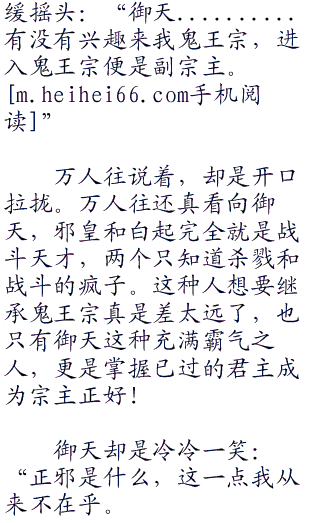 缓摇头：“御天..........
有没有兴趣来我鬼王宗，进
入鬼王宗便是副宗主。
[m.heihei66.com手机阅
读]”
万人往说着，却是开口
拉拢。万人往还真看向御
天，邪皇和白起完全就是战
斗天才，两个只知道杀戮和
战斗的疯子。这种人想要继
承鬼王宗真是差太远了，也
只有御天这种充满霸气之
人，更是掌握已过的君主成
为宗主正好！
御天却是冷冷一笑：
“正邪是什么，这一点我从
来不在乎。